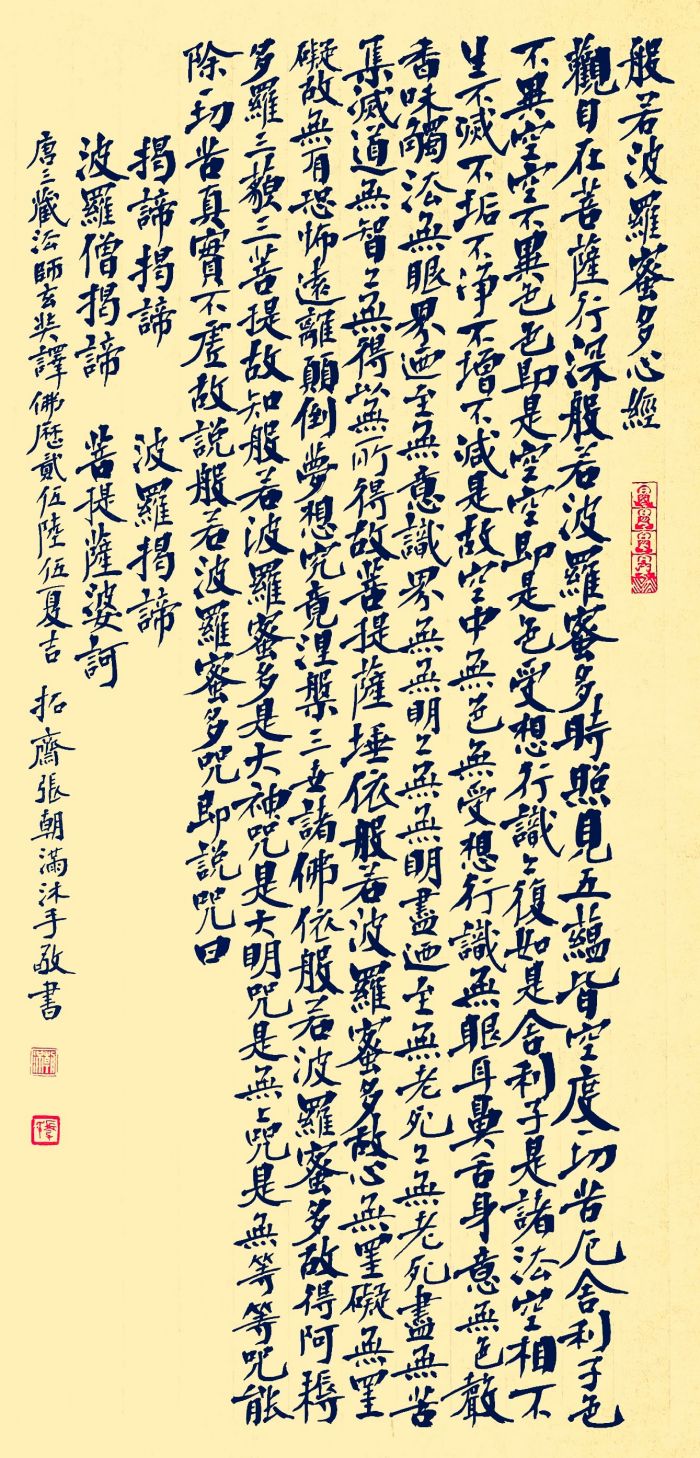 般若波羅蜜多心經
觀自在菩薩行深般若波羅蜜多時照見五蘊皆空度一切苦厄舍利子色
不異空空不異色色即是空空即是色受想行識亦復如是舍利子是諸法空相不
生不滅不垢不淨不增不減是故空中無色無受想行識無眼耳鼻舌身意無色聲
香味觸法無眼界迺至無意識界無無明亦無無明盡迺至無老死亦無老死盡無苦
集滅道無智亦無得以無所得故菩提薩埵依般若波羅蜜多故心無罣礙無罣
礙故無有恐怖遠離顛倒夢想究竟涅槃三世諸佛依般若波羅蜜多故得阿耨
多羅三藐三菩提故知般若波羅蜜多是大神咒是大明咒是無上咒是無等等咒能
除一切苦真實不虛故說般若波羅蜜多咒即說咒曰
揭諦揭諦 波羅揭諦
波羅僧揭諦 菩提薩婆訶
唐三藏法師玄奘譯佛曆貳伍陸伍夏吉 拓齋張朝滿沐手敬書